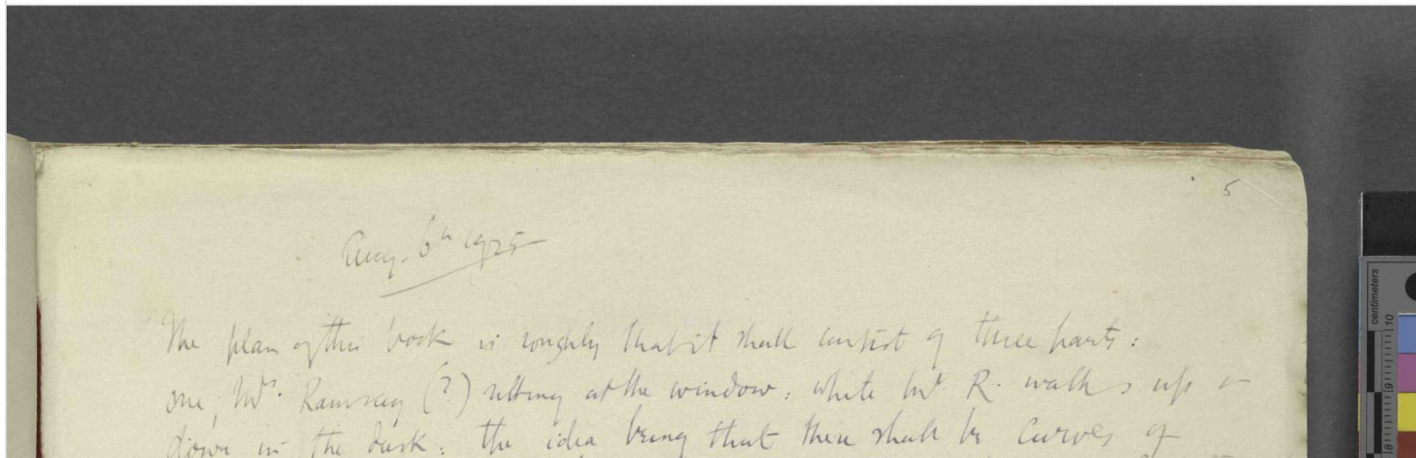 5
Aug. 6th 1925
The plan of this book is roughly that it shall consist of three parts:
one, Mrs. Ramsay (?) sitting at the window: while Mr R. walks up &
down in the dusk: the idea being that there shall be curves of
centimeters
10
9
8